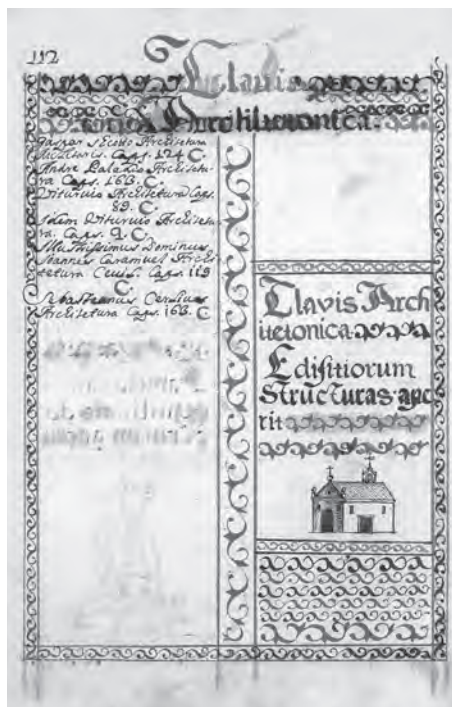 112
Clavis
Gaspar Architetura
Militaris. Caps. 124 C.
Andre Palatio Architetu-
ra Caps. 163. C.
Vituruio Architetura Caps.
89. C.
Idem Vituruio Architetu-
ra. Caps. 9. C.
Dominus
Joannes Caramuel Archi
tetura Ciuil. Caps 119
C.
Sebastianus
Architetura Caps. 163. C
Clavis Arch
itetonica
Edifitiorum
Structuras ape
rit